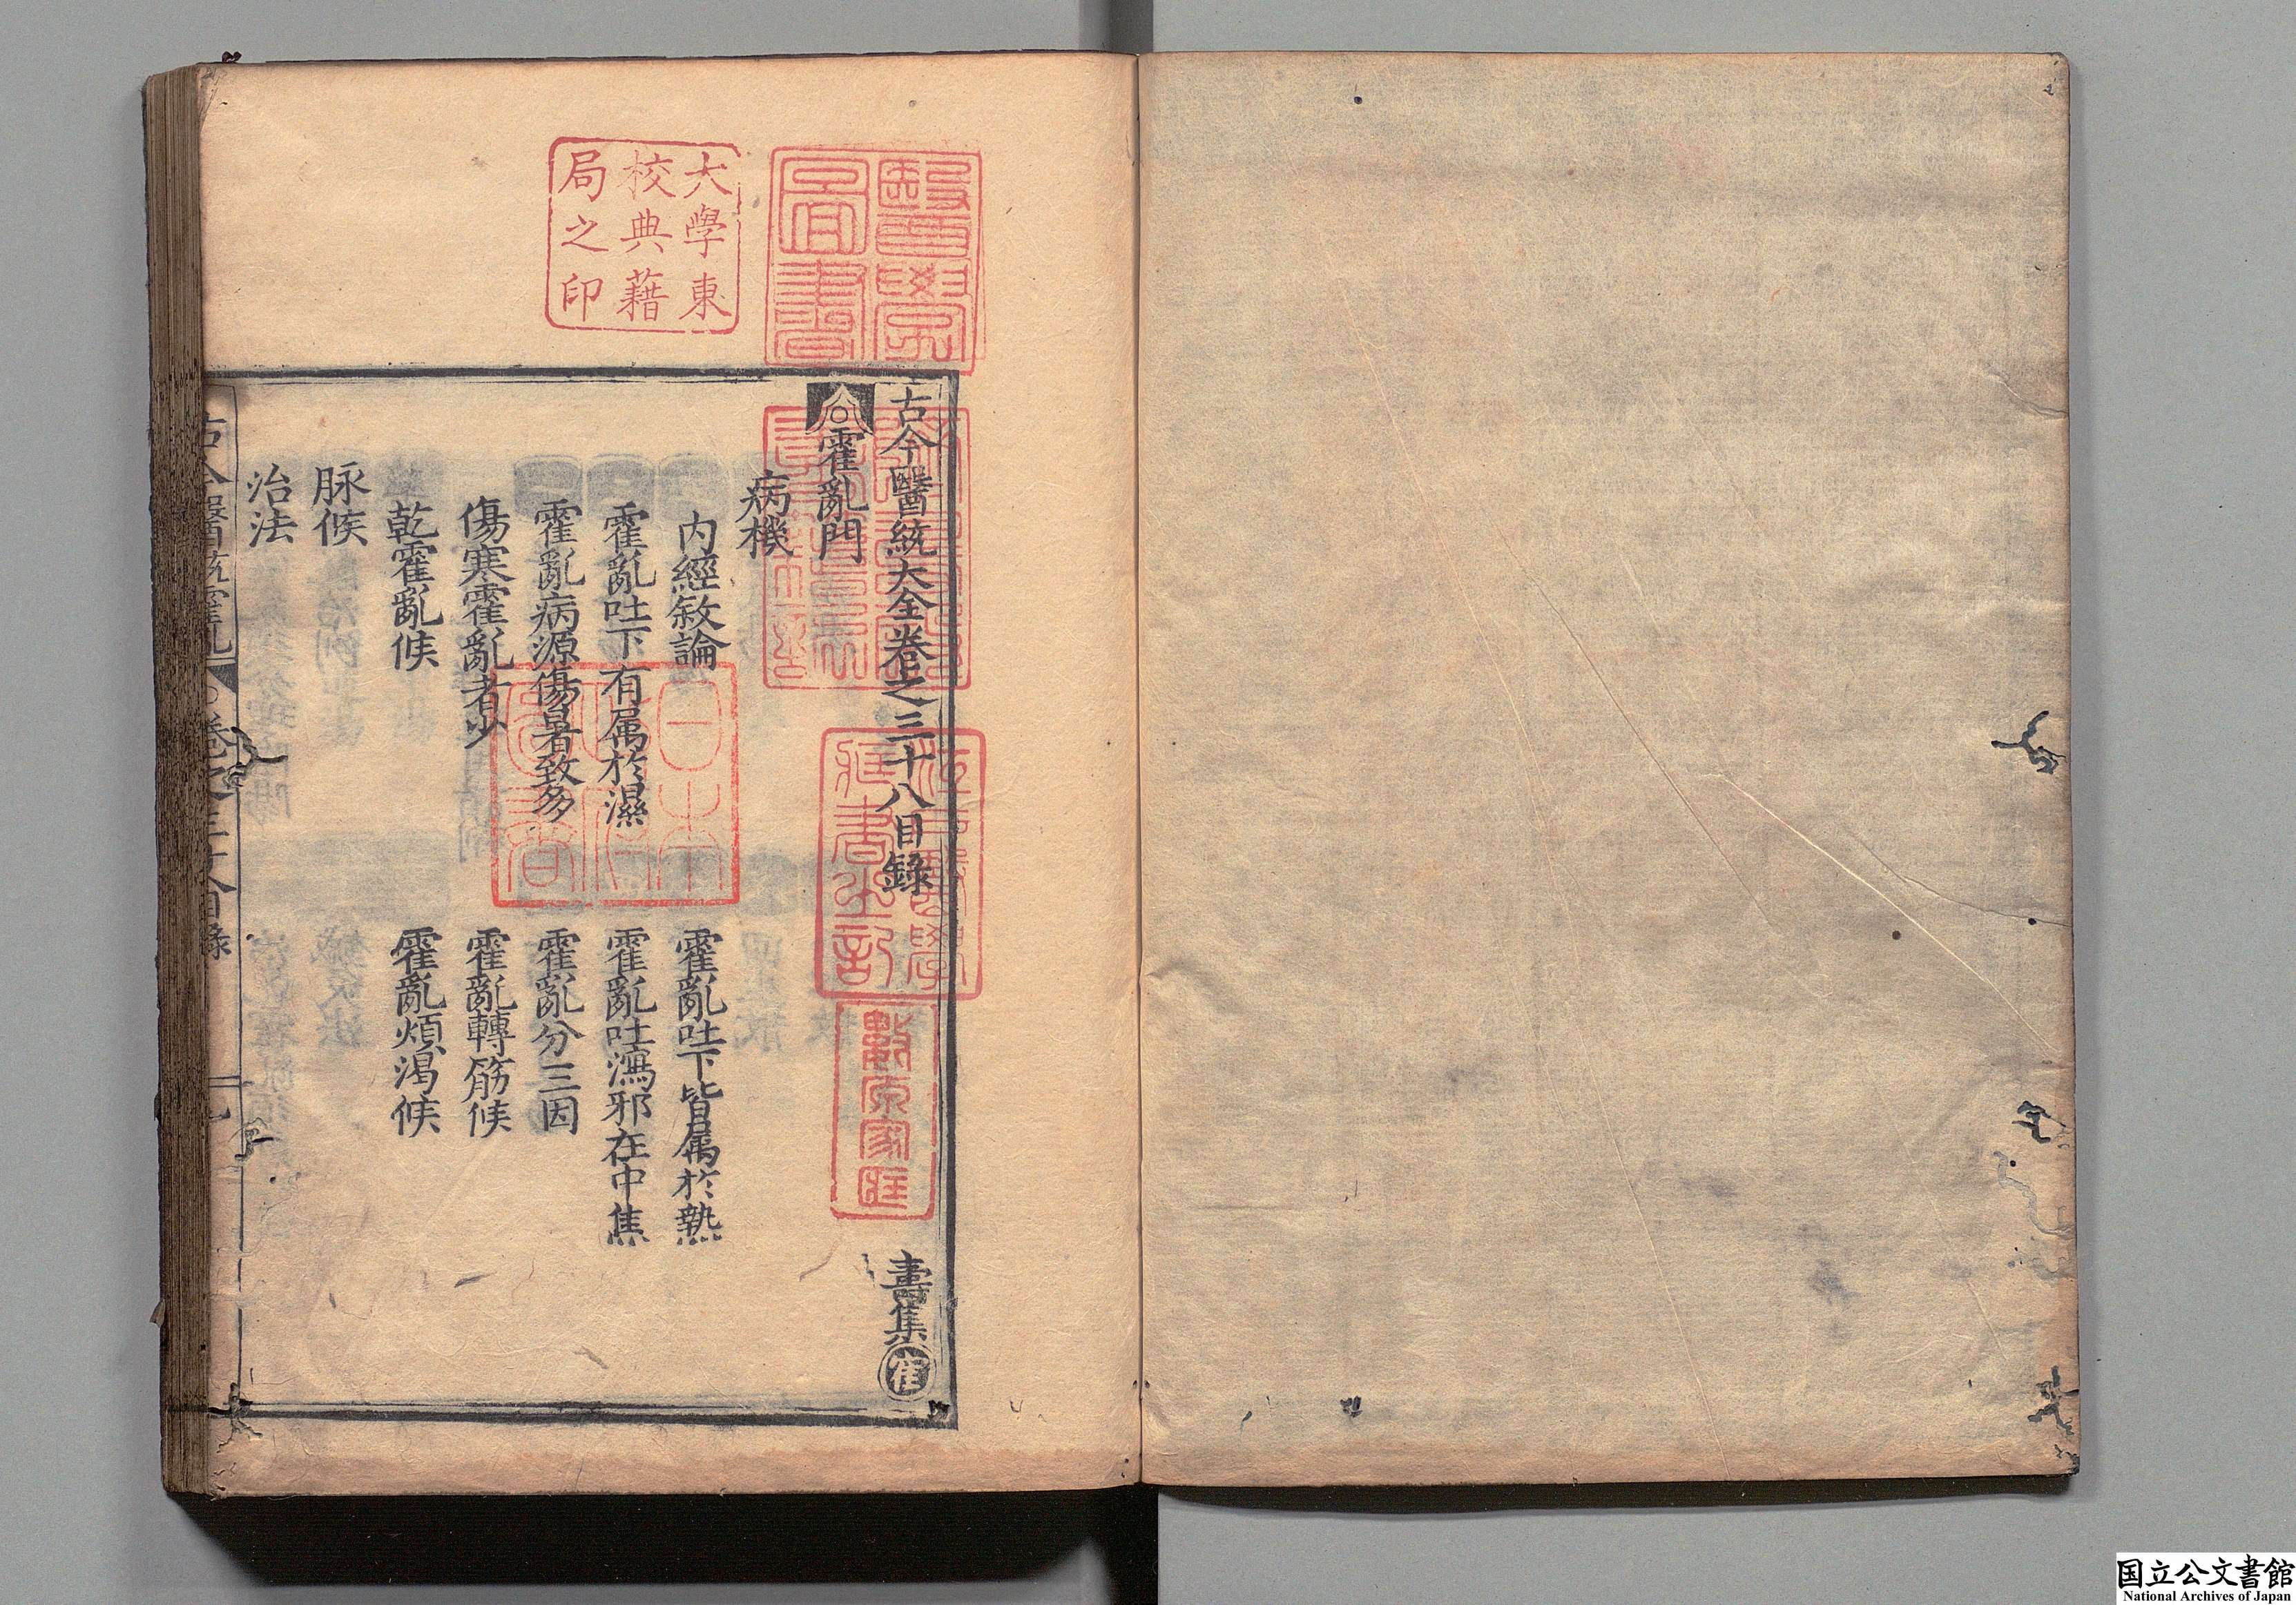 古今醫統大全卷之三十八目錄　壽集
霍亂門
病機
內經敘論　霍亂吐下皆屬於熱
霍亂吐下有屬於濕　霍亂吐瀉邪在中焦
霍亂病源傷暑致多　霍亂分三因
傷寒霍亂者少　霍亂轉筋候
乾霍亂候　霍亂煩渴候
脉候
治法
古今醫統霍亂　卷之三十八目錄　一
醫學圖書
大學東校典藉局之印
日本政府圖書
江戶醫學藏書之記
國立公文書館
National Archives of Japan